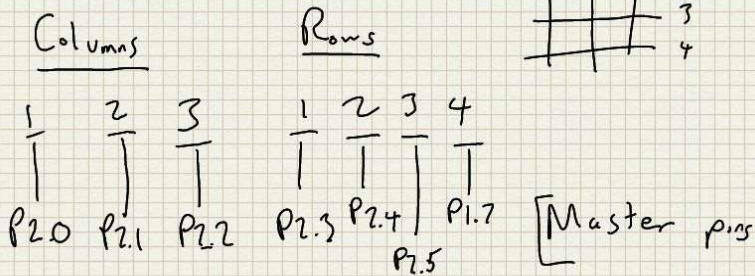 3
4
Columns Rows
1 2 3 1 2 3 4
P2.0 P2.1 P2.2 P2.3 P2.4 P1.7
P2.5
[Master pins